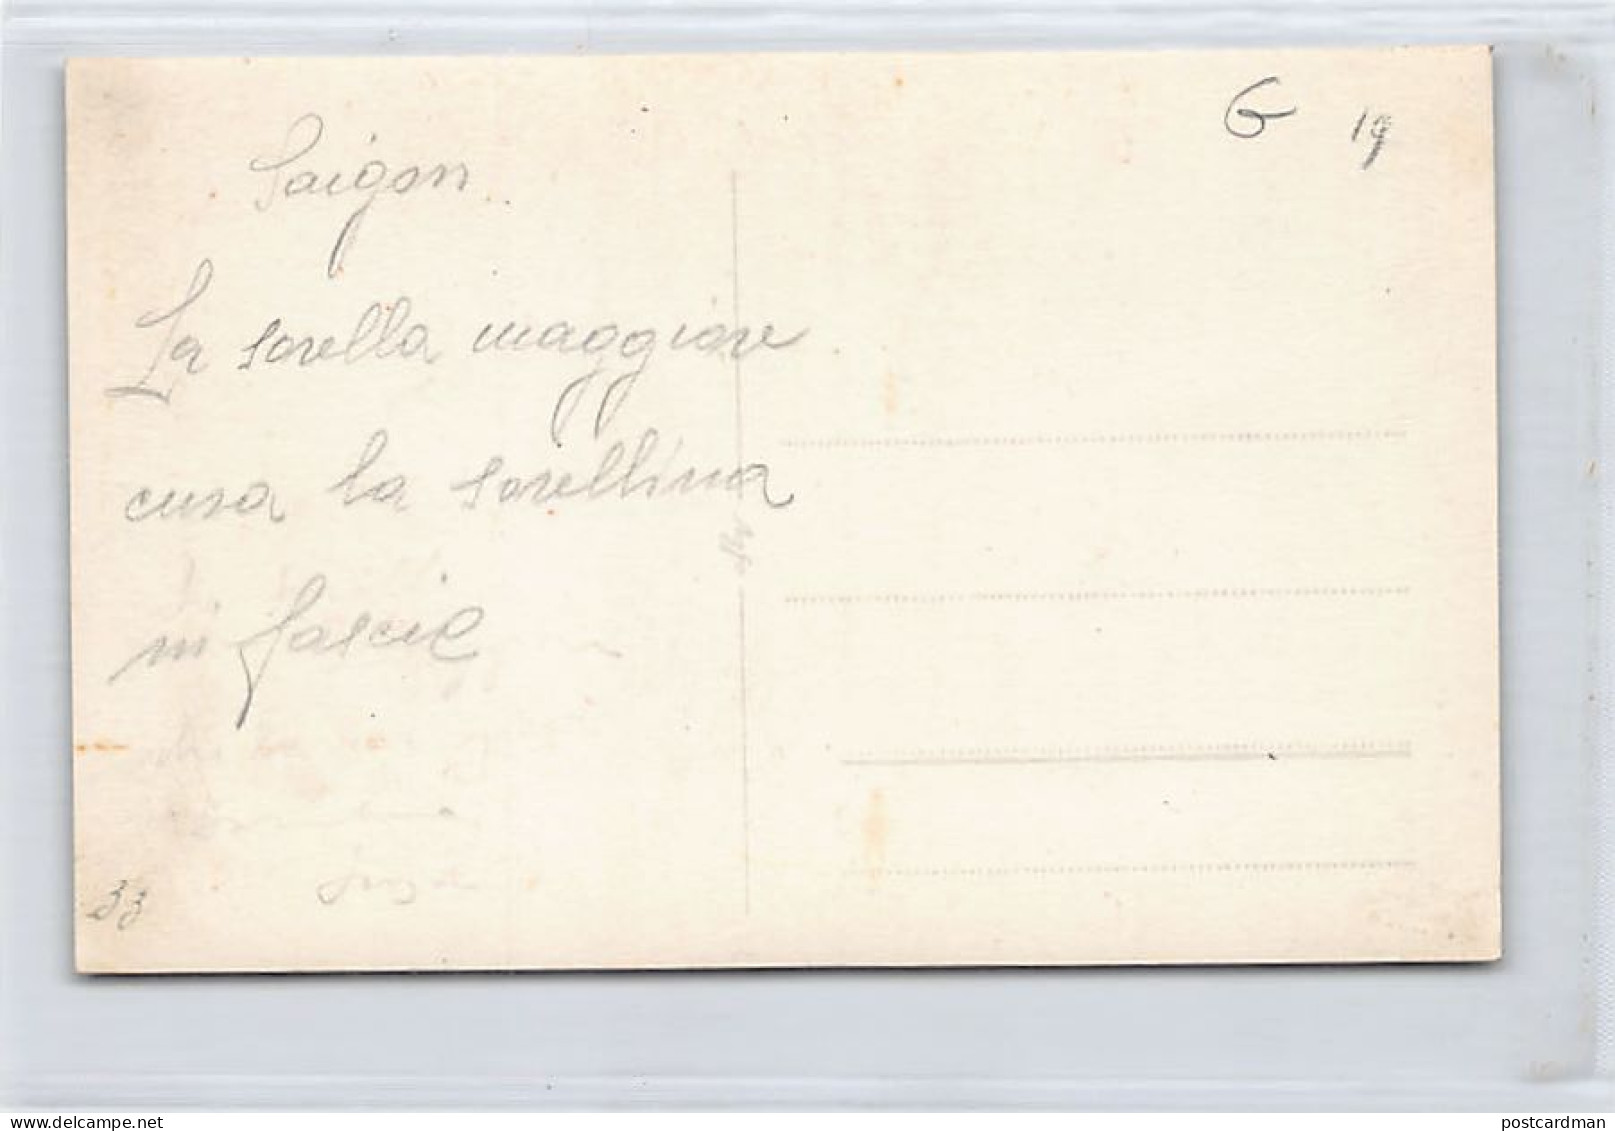 G 19
Saigon
La sorella maggiore
cura la sorellina
in fascie
33
postcardman